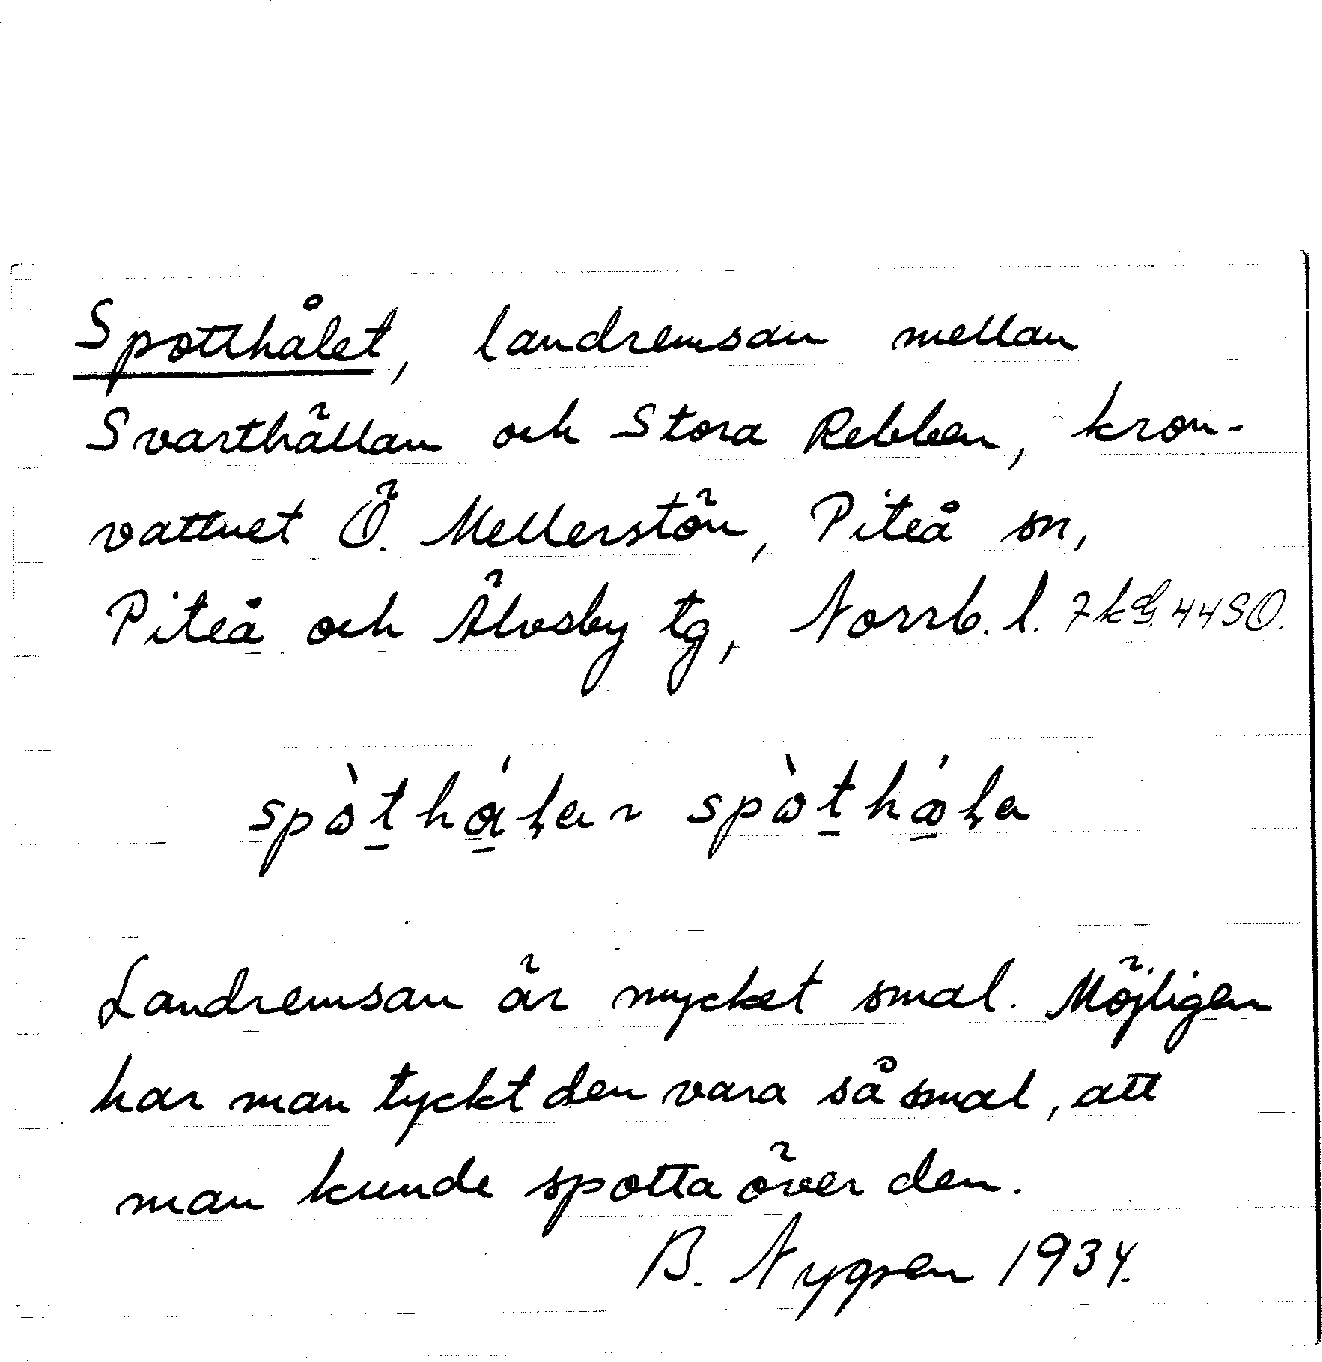 Spotthålet, landremsan mellan
Svarthällan och Stora Rebben, kron-
vattnet Ö. Mellerstön, Piteå sn,
Piteå och Älvsby tg, Norrb. l.
Landremsan är mycket smal. Möjligen
har man tyckt den vara så smal, att
man kunde spotta över den.
B. Nygren 1934.